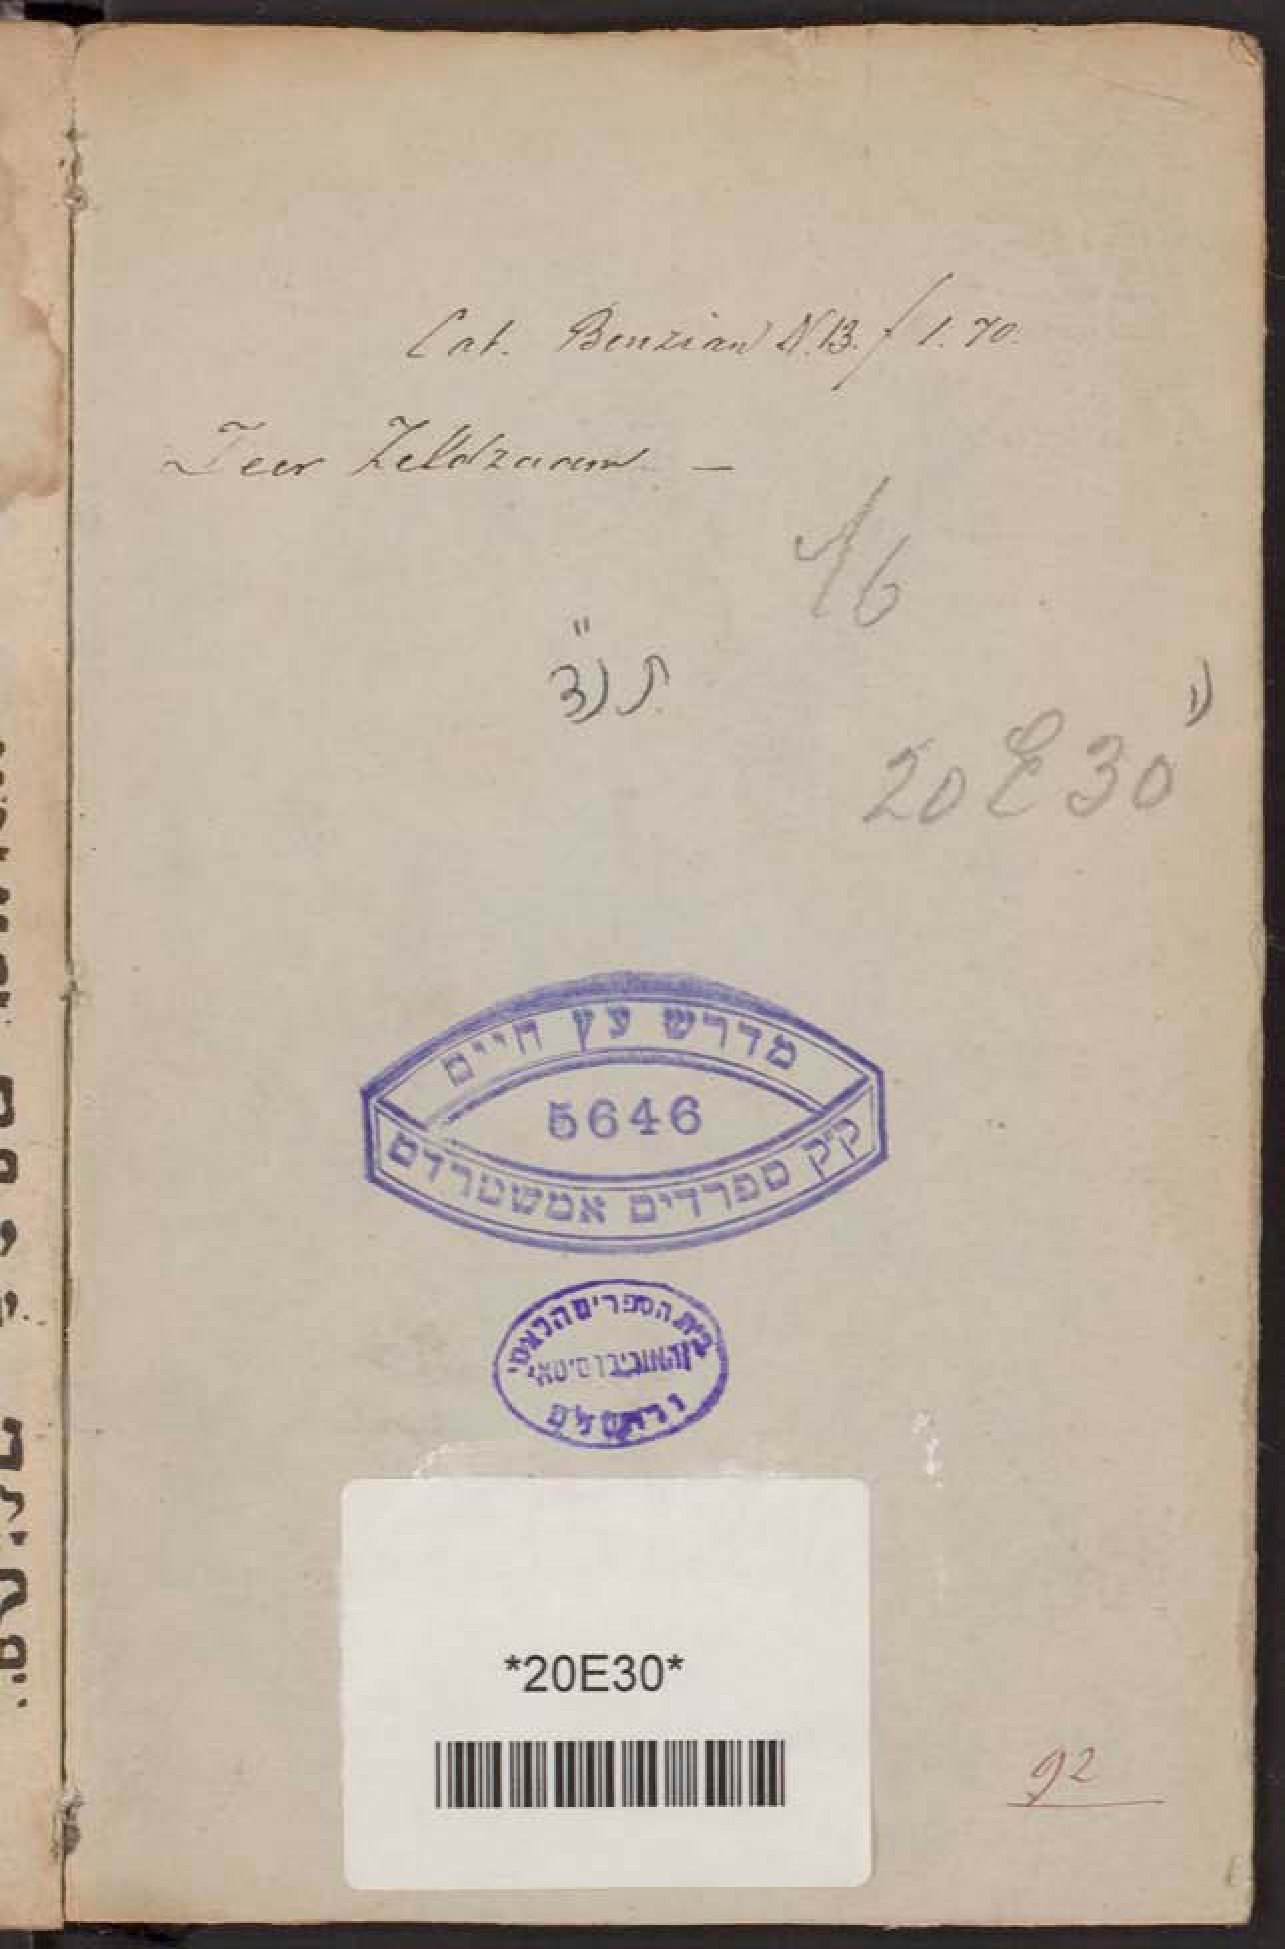 Cat. Benzian N. 13. f 1.70.
Zeer Zeldzaam —
16
תנ"ד
20 E 30
מדרש עץ חיים
5646
ק"ק ספרדים אמשטרדם
בית הספרים הלאומי
והאוניברסיטאי
ירושלים
*20E30*
92